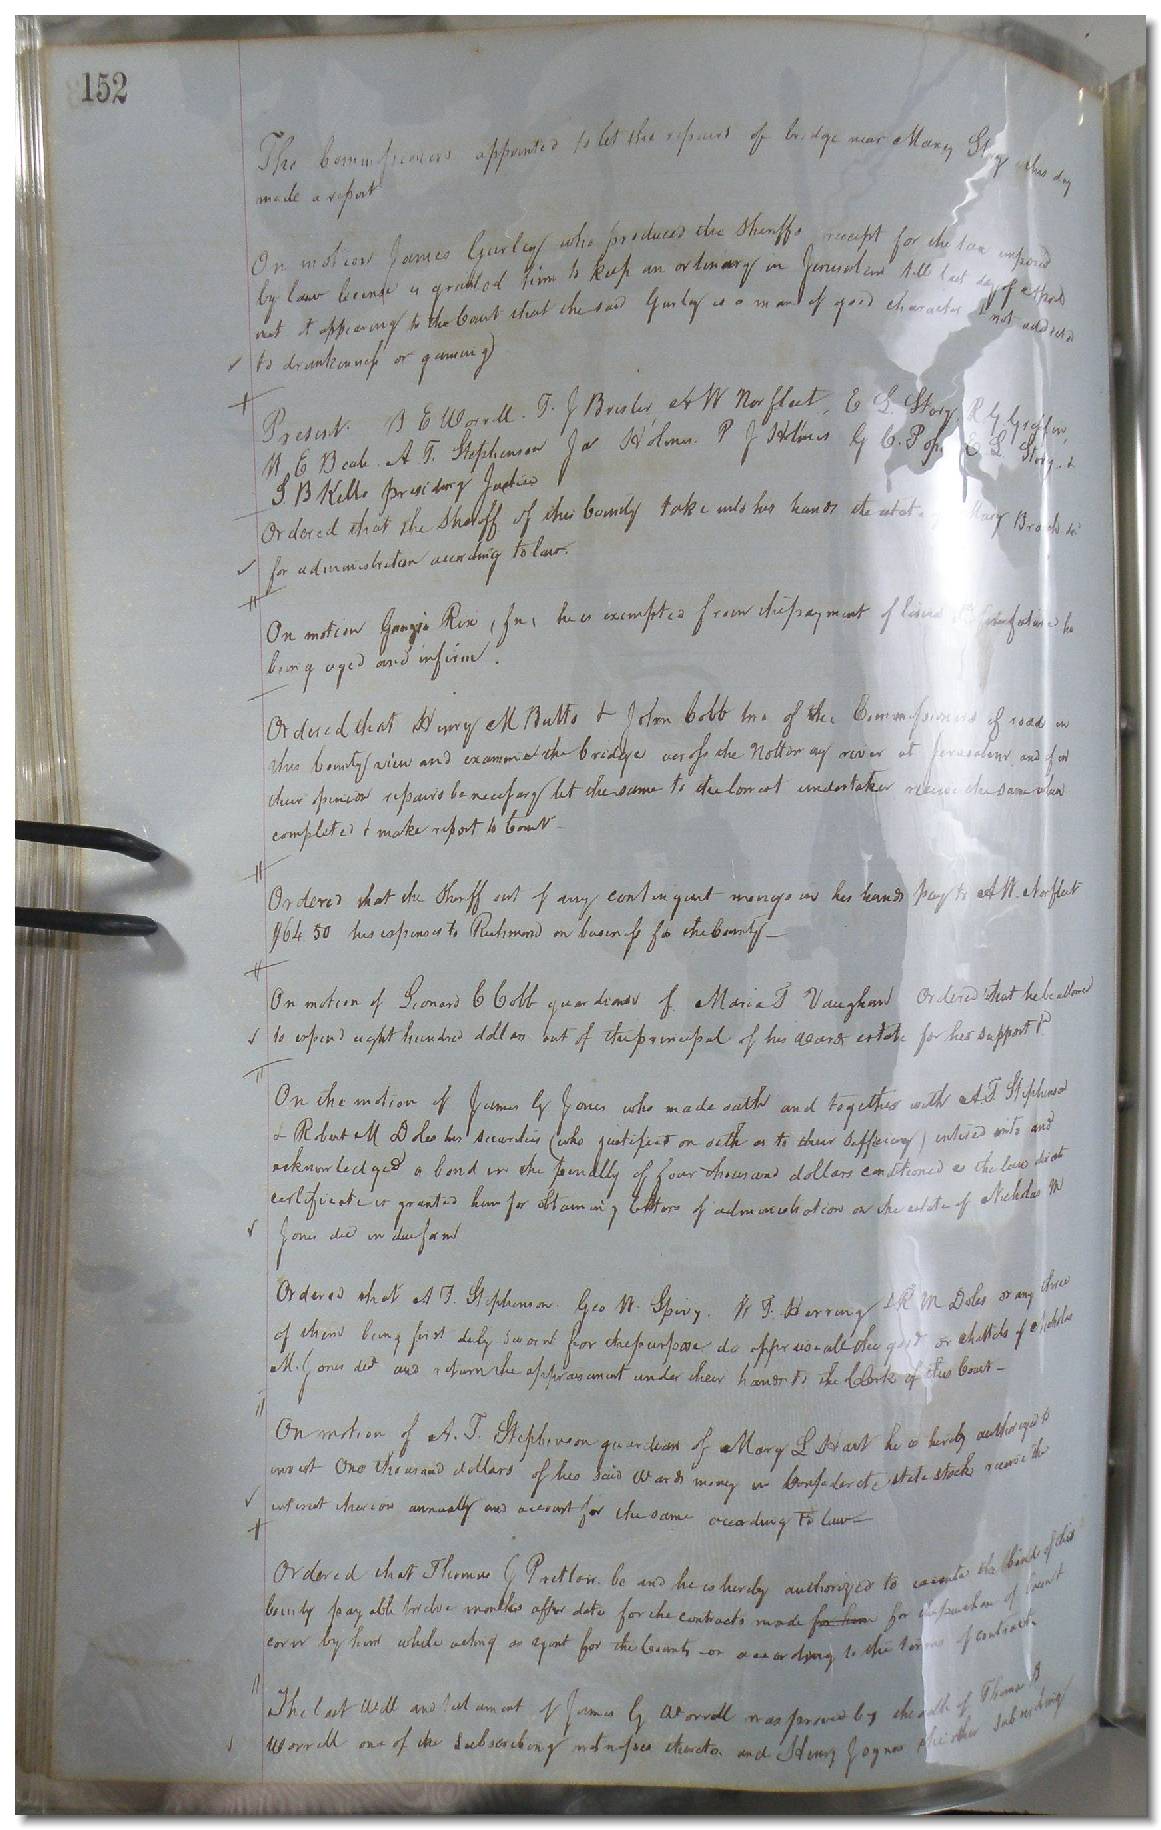 152
The Commissioners appointed to let the repairs of bridge near Maney Story this day
made a report
On motion James Gurley who produced the Sheriffs receipt for the tax imposed
by law license is granted him to keep an ordinary in Jerusalem till last day of April
next it appearing to the Court that the said Gurley is a man of good character & not addicted
to drunkenness or gaming
Present. B E Worrell. T. J Brister, A W Norfleet, E L. Story, R G Griffin,
W E Beale. A. T. Stephenson Jas Holmes. P J Holmes G C. Pope E L Story &
S B Kello presiding Justice
Ordered that the Sheriff of this County take into his hands the estate Mary
for administration according to law.
On motion Rix, fn, he is exempted from the payment of he
being aged and infirm.
Ordered that Henry M Butts & John Cobb two of the Commissioners of roads in
this County view and examine the bridge across the Nottoway river at Jerusalem, and if in
their opinion repairs be necessary let the same to the lowest undertaker receive the same when
completed & make report to Court
Ordered that the Sheriff out of any contingent moneys in his hands pay to A W. Norfleet
$64 50 his expenses to Richmond on business for the County
On motion of Leonard C Cobb guardian of Maria T Vaughan Ordered that he be allowed
to expend eight hundred dollars out of the principal of his wards estate for her support &c
On the motion of James G Jones who made oath and together with A T Stephenson
& Robert M Doles his securities (who justified on oath as to their sufficiency) entered into and
acknowledged a bond in the penalty of four thousand dollars conditioned as the law directs
certificate is granted him for obtaining letters of administration on the estate of Nicholas M
Jones decd in due form
Ordered that A T. Stephenson. Geo W. Spivy. W T. Herring & R M Doles or any three
of them being first duly sworn for the purpose do appraise all the goods or chattels of Nicholas
M. Jones decd and return the appraisement under their hands to the Clerk of this Court
On motion of A. T. Stephenson guardian of Mary L Hart he is hereby authorized to
invest One thousand dollars of his said wards money in Confederate state stock receive the
interest thereon annually and account for the same according to law
Ordered that Thomas J Pretlow be and he is hereby authorized to execute the bond of this
County payable twelve months after date for the contracts made for him for the purchase of
corn by him while acting as agent for the County or according to the terms of contract
The last Will and testament of James G Worrell was proved by the oath of Thomas B
Worrell one of the subscribing witnesses thereto and Henry Joyner the other subscribing